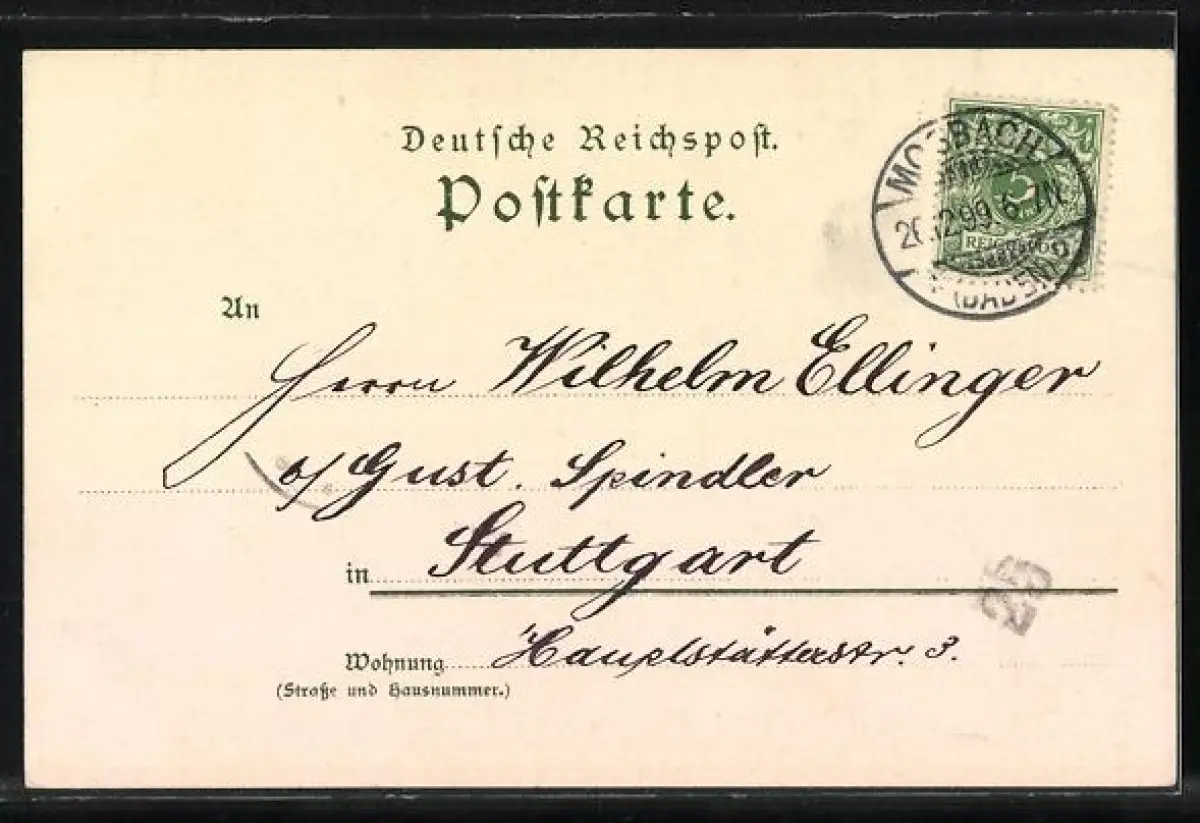 Deutsche Reichspost.
Postkarte.
MOSBACH
12.99. 6-7N.
(BADEN)
5
REICHSPOST
An
Herrn Wilhelm Ellinger
a/ Gust. Spindler
in Stuttgart
Wohnung Hauptstätterstr. 3.
(Straße und Hausnummer.)